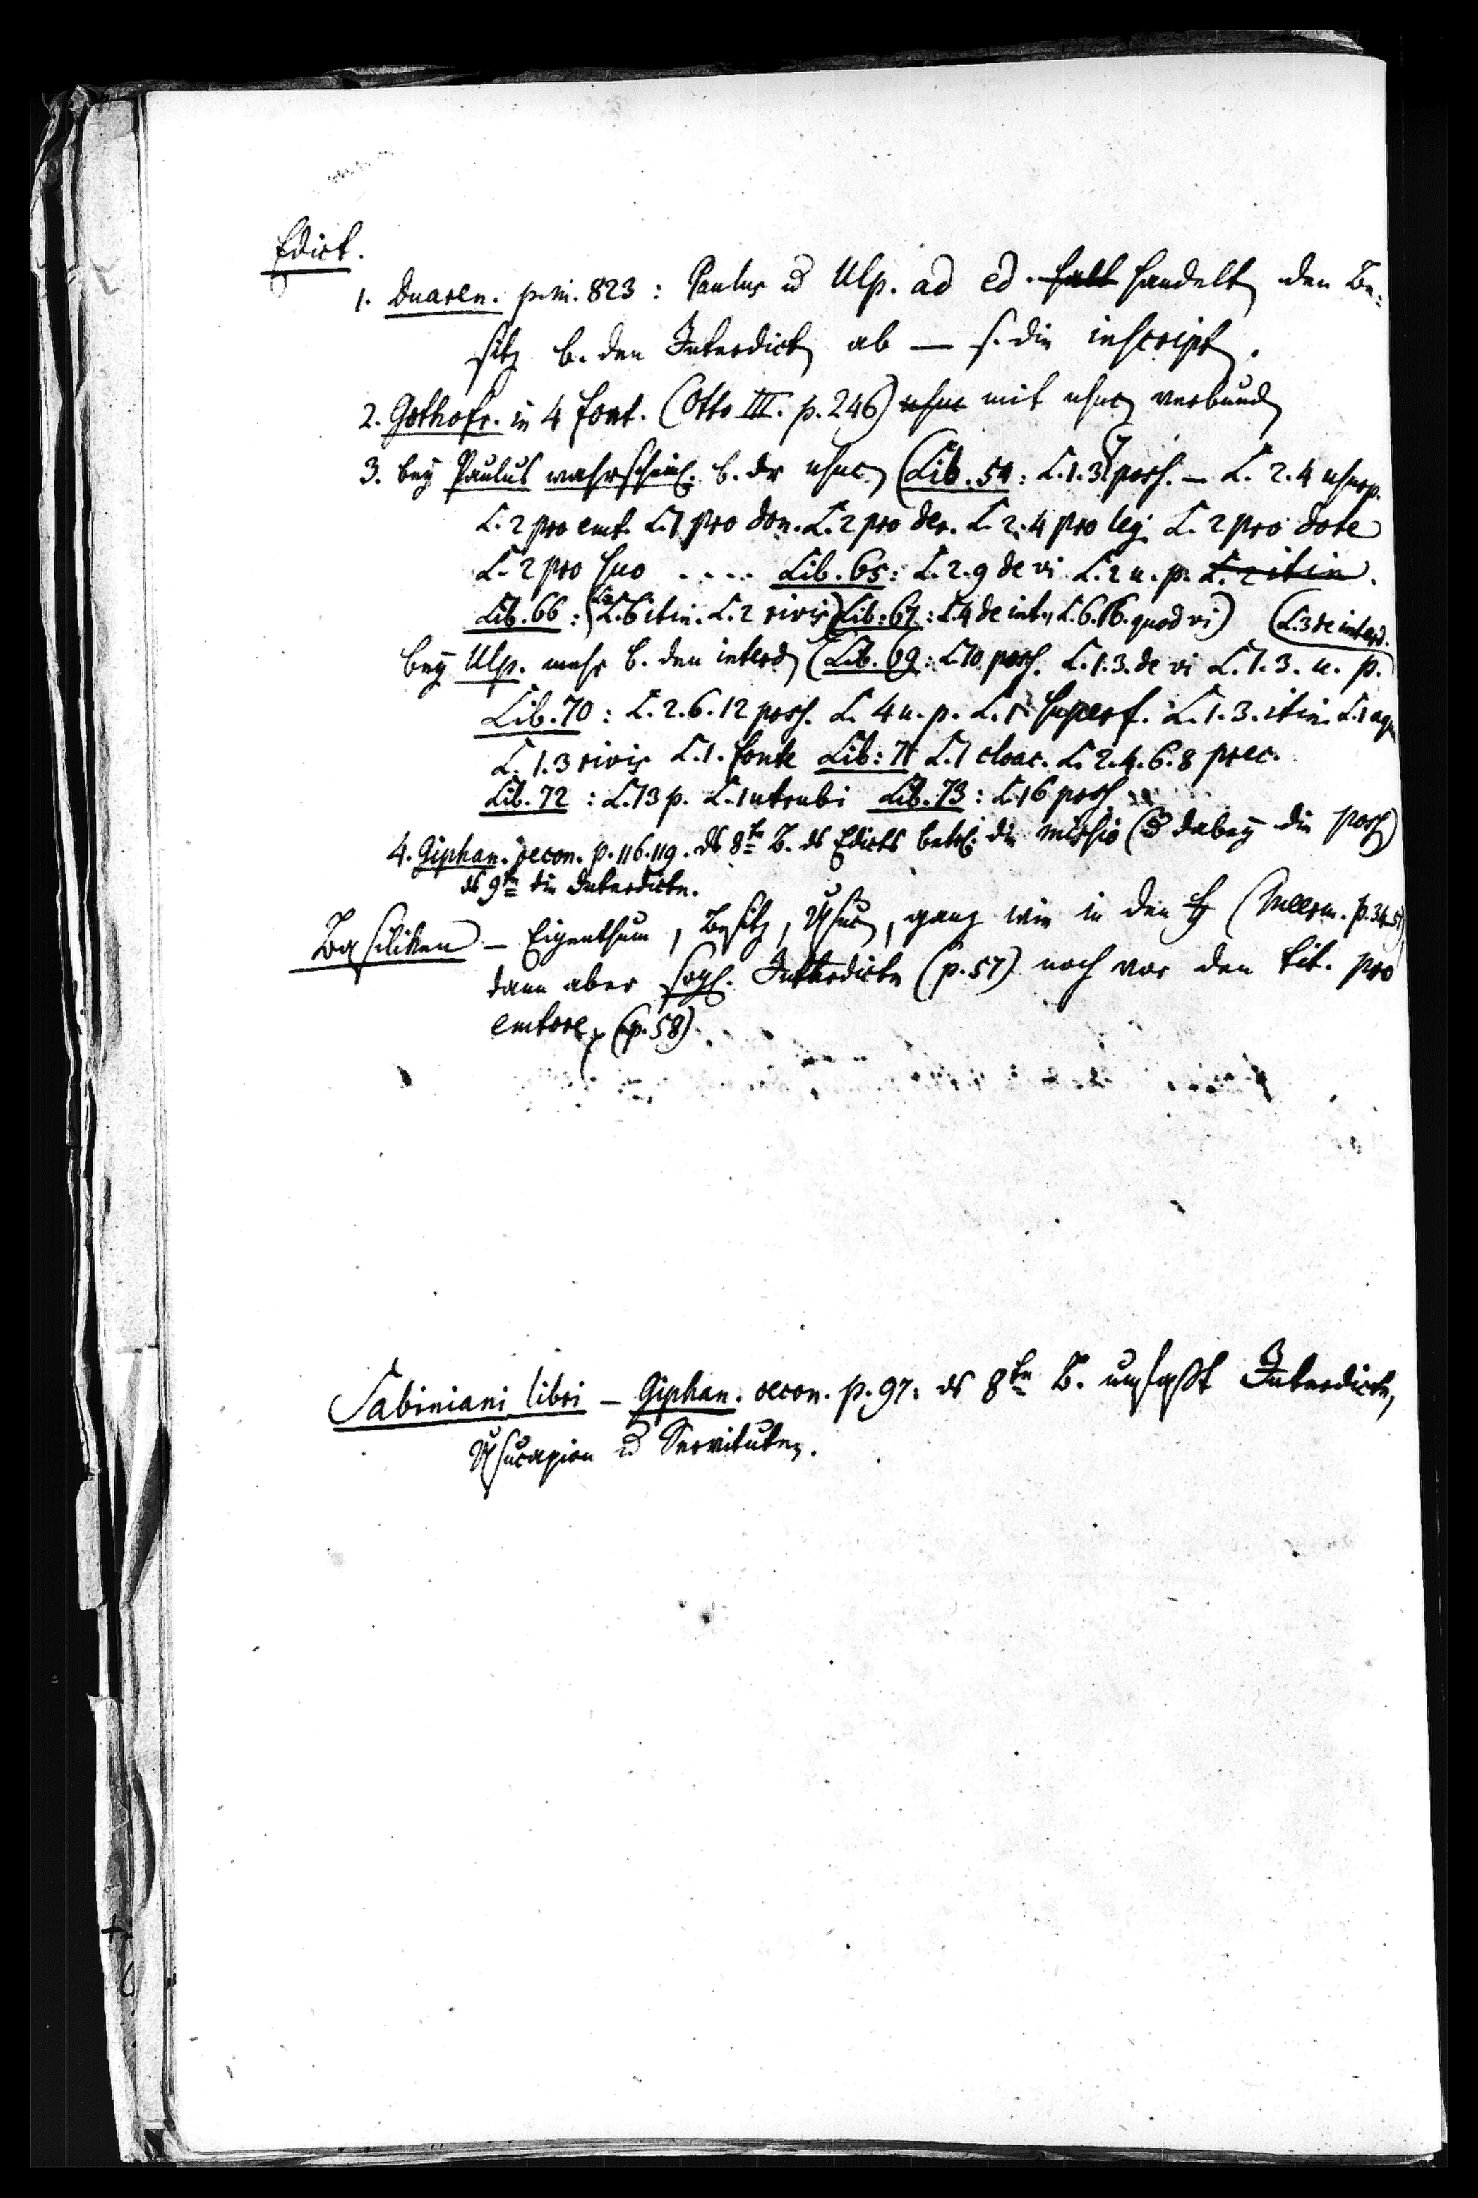 Edict.
1. Duaren. p. m. 823: Paulus u Ulp. ad ed. handelt den Be-
sitz b. den Interdict ab — s. die inscript.
2. Gothofr. in 4 font. (Otto III. p. 246) usuc mit usuc verbund
3. bey Paulus wahrscheinl. b. der usuc (Lib. 54: L. 1. 3. poss. — L. 2. 4 usurp.
L. 2 pro emt. L. 1 pro don. L. 2 pro der. L. 2. 4 pro leg. L. 2 pro dote
L. 2 pro suo .... Lib. 65: L. 2. 9 de vi L. 2 u. p. L. 2 itin.
Lib. 66: L. 6 itin. L. 2 rivis Lib. 67: L. 4 de int., L. 6. 16. quod vi) (L. 3 de interd.
bey Ulp. mehr b. den interd (Lib. 69: L. 10 poss. L. 1. 3. de vi L. 1. 3. u. p.
Lib. 70: L. 2. 6. 12 poss. L. 4 u. p. L. 1 superf. L. 1. 3. itin. L. 1 aqu
L. 1. 3 rivis L. 1. fonte Lib: 71 L. 1 cloac. L. 2. 4. 6. 8 prec.
Lib. 72: L. 13 p. L. 1 utrubi Lib. 73: L. 16 poss
4. Giphan. oecon. p. 116. 119. ds 8te B. ds Edicts betr. die missio (u dabey die poss)
ds 9te die Interdicte.
Basiliken — Eigenthum, Besitz, Usuc, ganz wie in den (Meerm. p. 34-51)
dann aber sogl. Interdicte (p. 57) noch vor den tit. pro
emtore (p. 58)
Sabiniani libri — Giphan. oecon. p. 97: ds 8te B. umfaßt Interdicte,
Usucapion u Servituten.